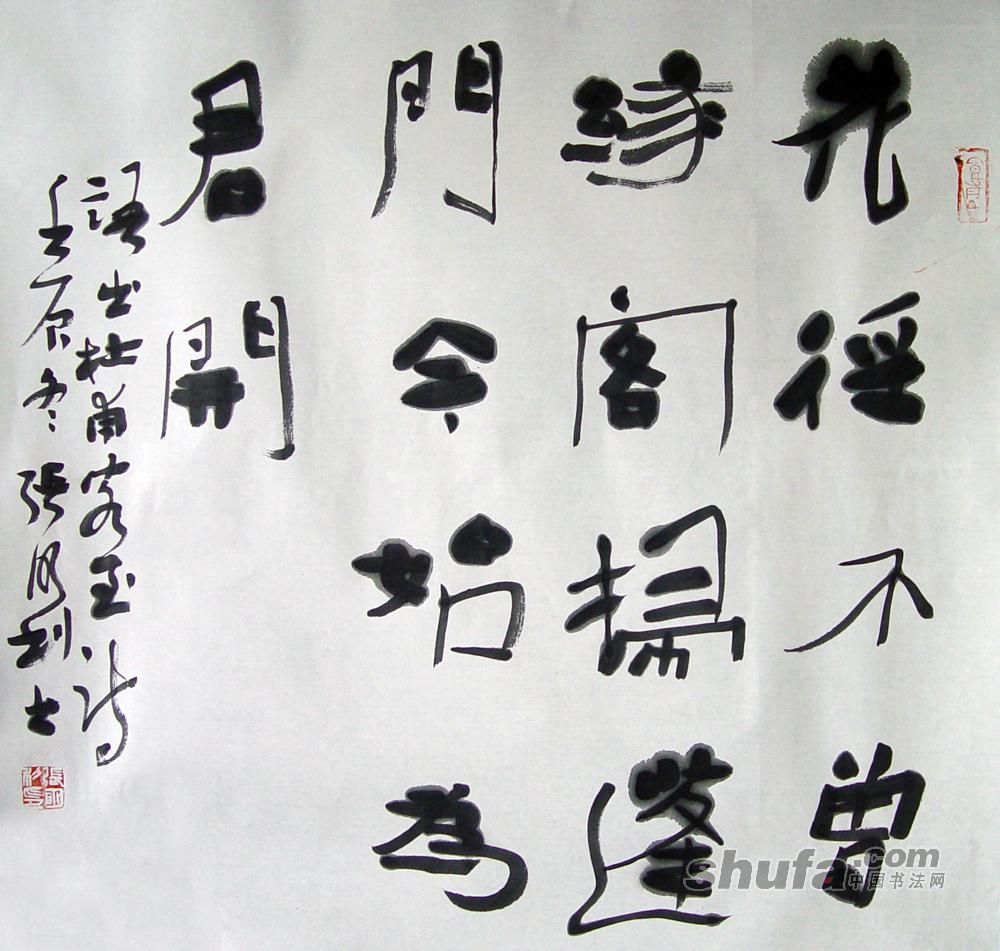 花徑不曾
緣客掃蓬
門今始為
君開
語出杜甫客至詩
壬辰冬張明利
shufa.com
中国书法网